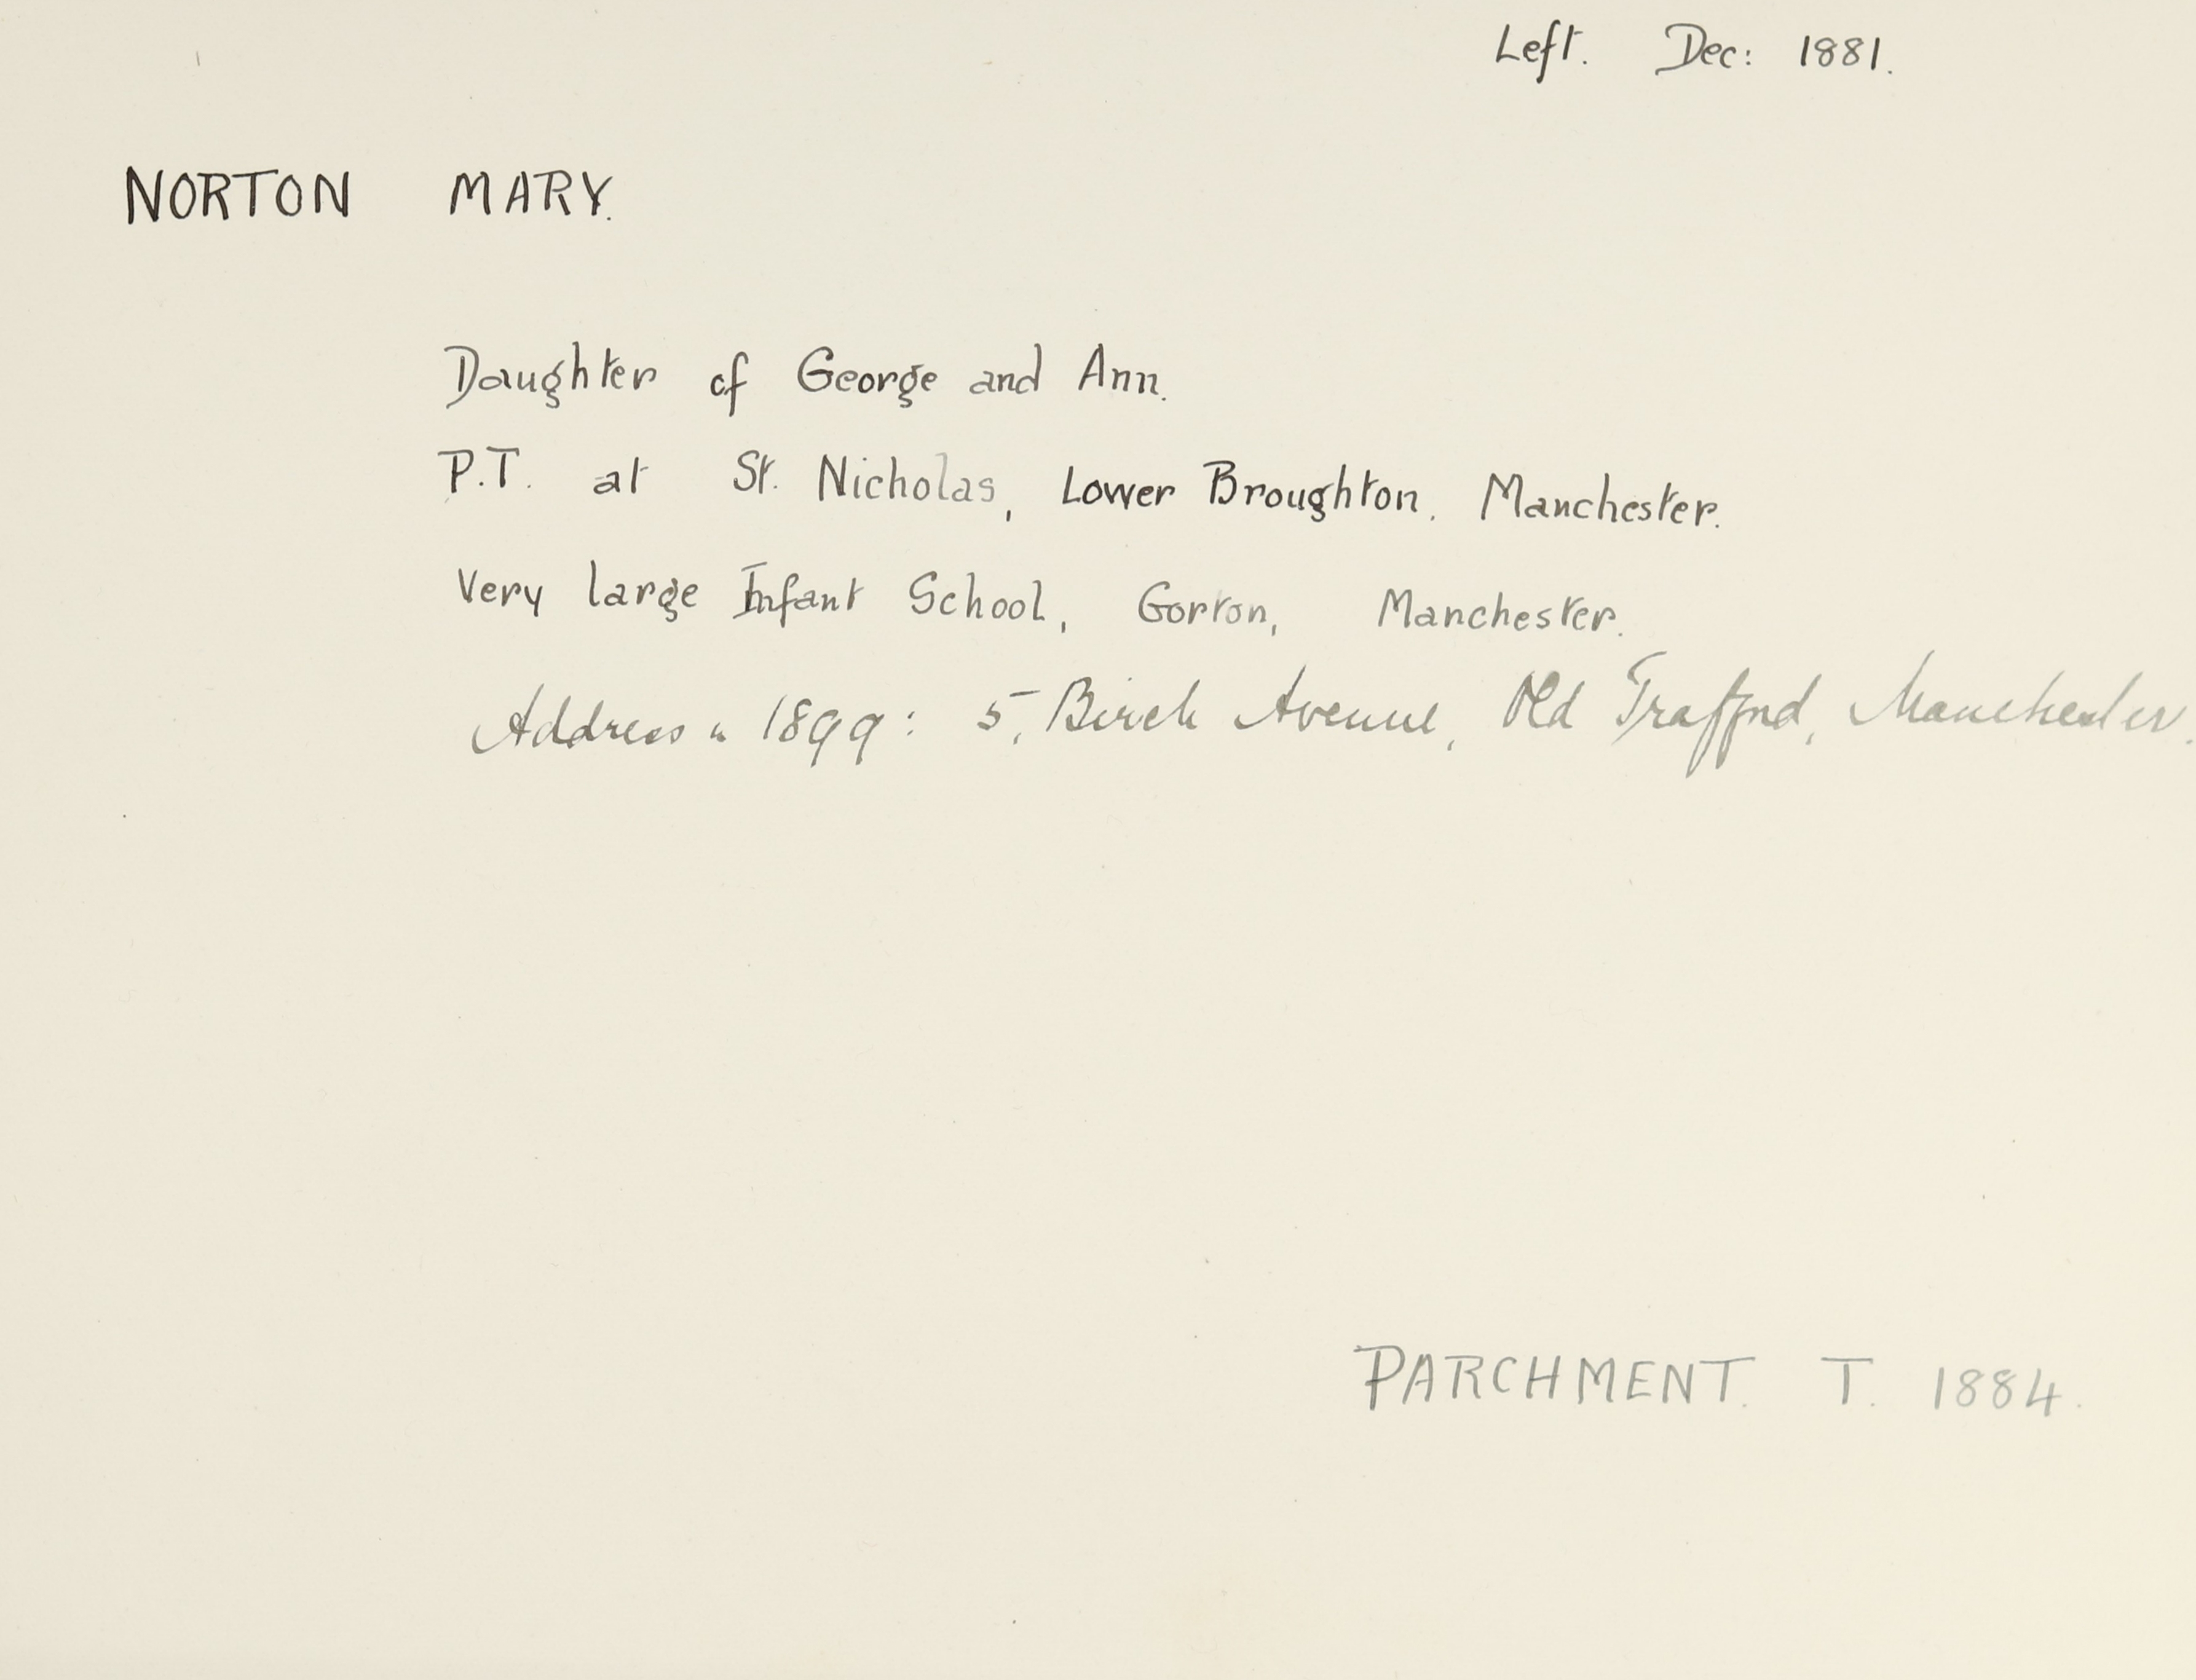 Left. Dec: 1881.
NORTON MARY.
Daughter of George and Ann.
P.T. at St. Nicholas, Lower Broughton. Manchester.
Very large Infant School, Gorton, Manchester.
Address in 1899: 5, Birch Avenue, Old Trafford, Manchester.
PARCHMENT. T. 1884.